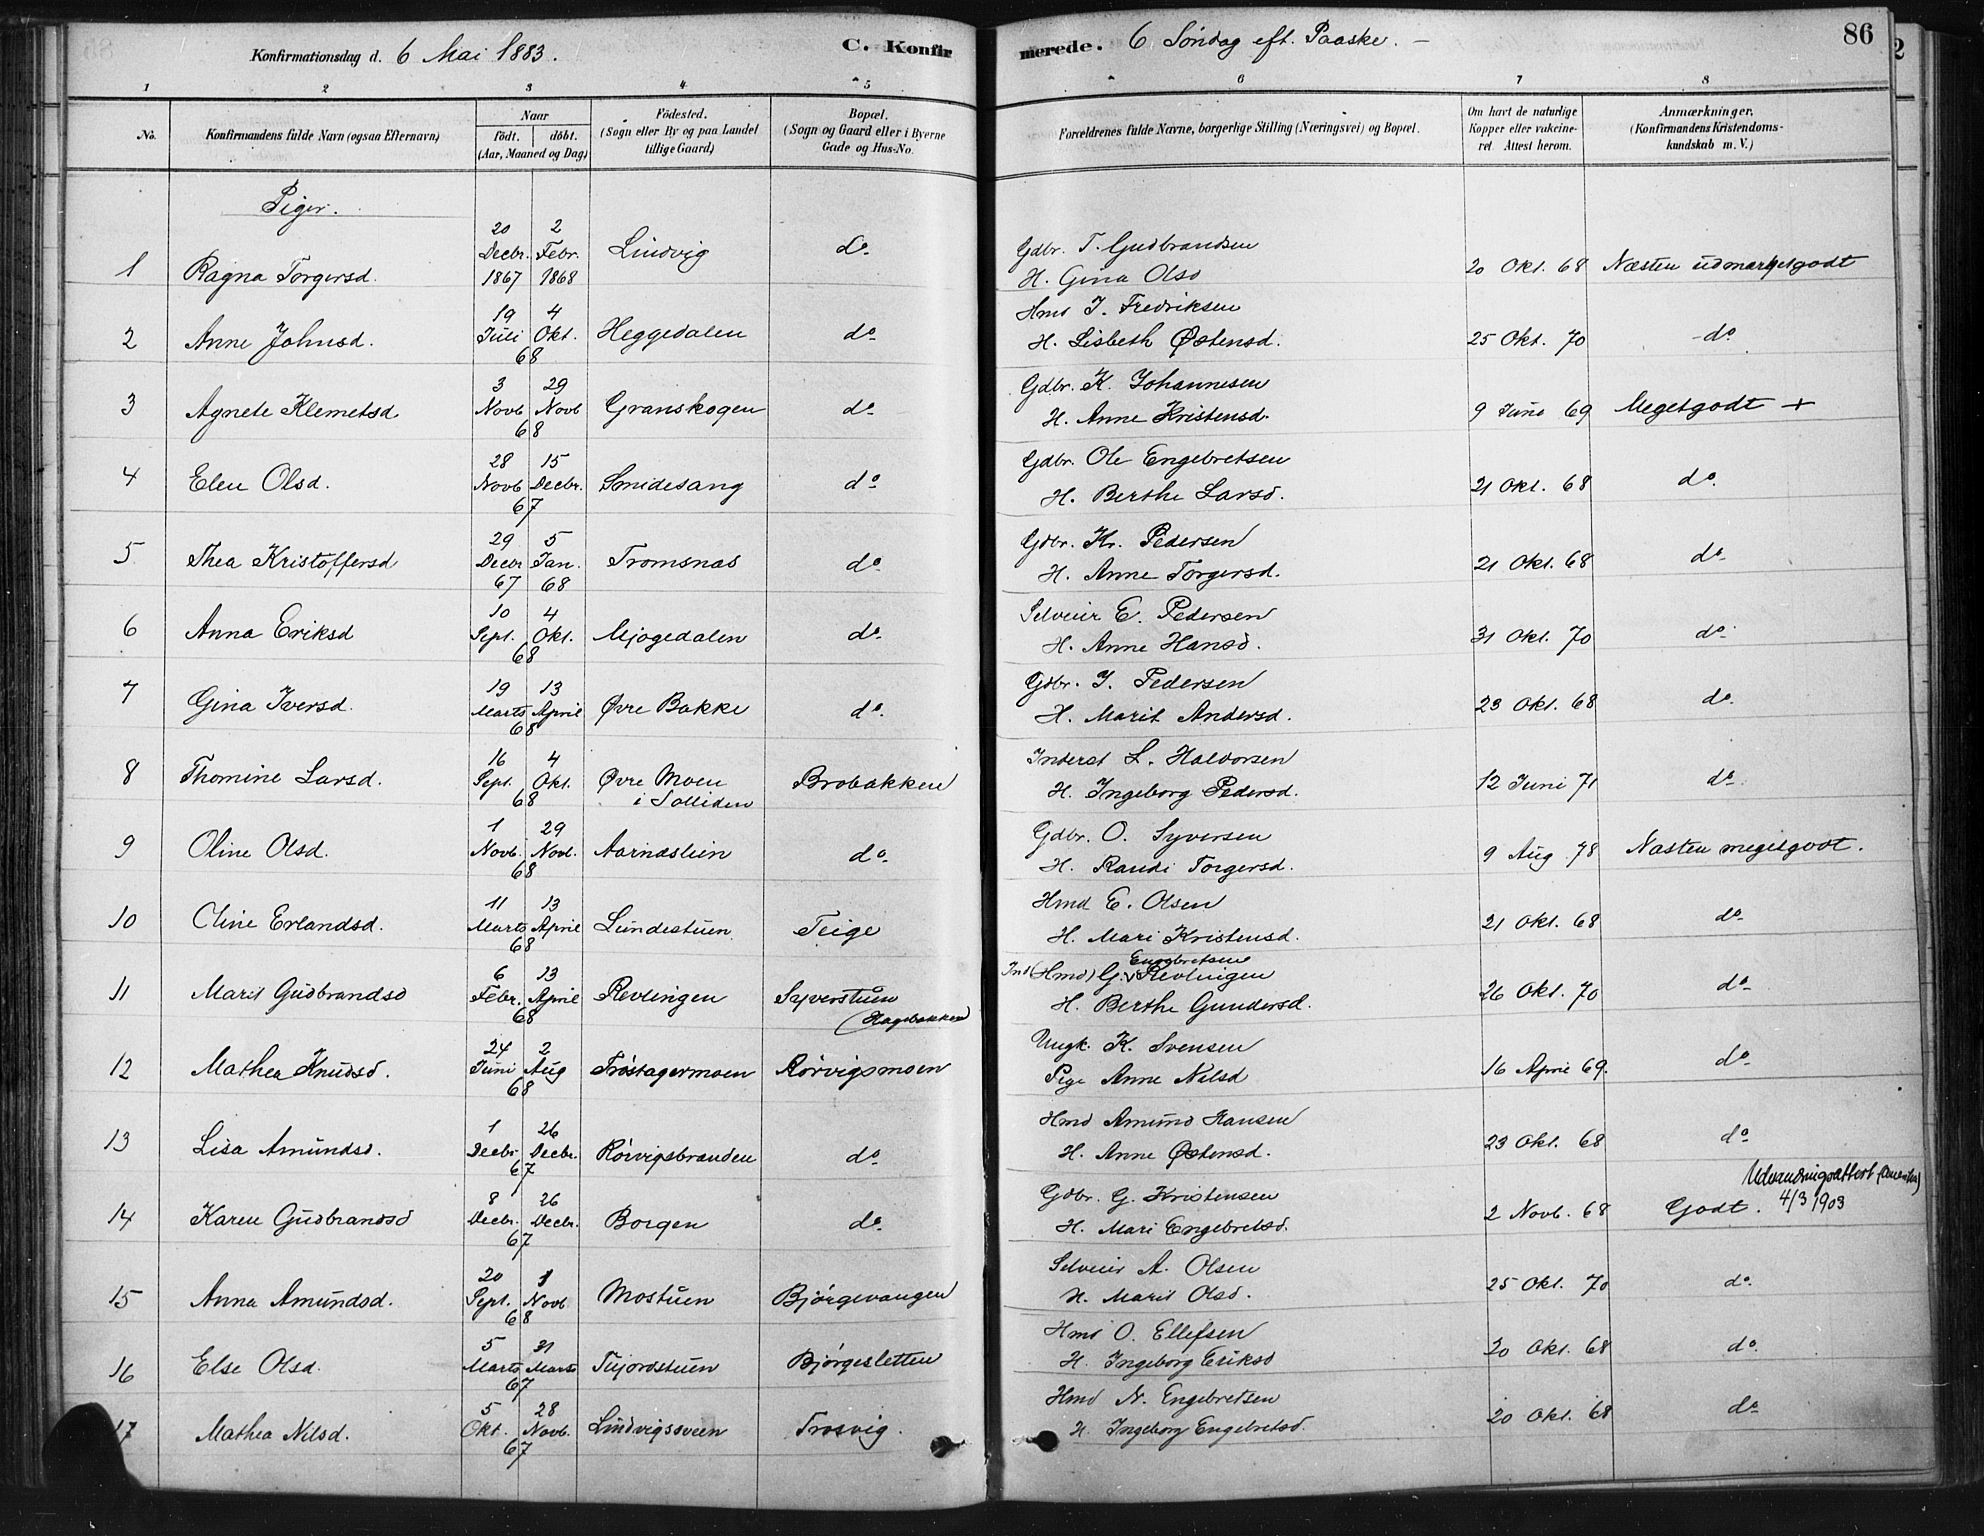 Konfirmationsdag d. 6 Mai 1883. C. Konfirmerede. 6 Søndag eft. Paaske. 86
1 2 3 4 5 6 7 8
No. Konfirmandens fulde Navn (ogsaa Efternavn) Naar født. døbt. (Aar, Maaned og Dag) Fødested. (Sogn eller By og paa Landet tillige Gaard) Bopæl. (Sogn og Gaard eller i Byerne Gade og Hus-No. Forældrenes fulde Navne, borgerlige Stilling (Næringsvei) og Bopæl. Om havt de naturlige Kopper eller vakcineret. Attest herom. Anmærkninger, (Konfirmandens Kristendomskundskab m. V.)
Piger.
1 Ragna Torgersd. 20 Decbr. 1867 2 Febr. 1868 Lindvig do. Gdbr. T. Gudbrandsen H. Gina Olsd 20 Okt. 68 Næsten udmærketgodt
2 Anne Johnsd. 19 Juli 4 Okt. 68 Heggedalen do. Hmd J. Fredriksen H. Lisbeth Østensd. 25 Okt. 70 do.
3 Agnete Klemetsd. 3 Novb 29 Novb 68 Granskogen do. Gdbr. K. Johannesen H. Anne Kristensd. 9 Juno 69 Megetgodt +
4 Elen Olsd. 28 Novb 15 Decbr. 67 Smidesang do. Gdbr. Ole Engebretsen H. Berthe Larsd. 21 Okt. 68 do.
5 Thea Kristoffersd 29 Decbr 67 5 Jan. 68 Tromsnæs do. Gdbr. Kr. Pedersen H. Anne Torgersd. 21 Okt. 68 do.
6 Anna Eriksd 10 Sept. 4 Okt. 68 Mjogedalen do. Selveier E. Pedersen H. Anne Hansd. 31 Okt. 70 do.
7 Gina Iversd. 19 Marts 13 April 68 Øvre Bakke do. Gdbr. I. Pedersen H. Marit Andersd. 23 Okt. 68 do.
8 Thomine Larsd. 16 Sept. 4 Okt. 68 Øvre Moen i Solliden Brobakken Inderst L. Haldorsen H. Ingeborg Pedersd. 12 Juni 71 do.
9 Oline Olsd. 1 Novb. 29 Novb. 68 Aarnæslien do. Gdbr. O. Syversen H. Randi Torgersd. 9 Aug 78 Næsten megetgodt.
10 Oline Erlandsd. 11 Marts 13 April 68 Lundestuen Teige Hmd E. Olsen H. Mari Kristensd. 21 Okt. 68 do.
11 Marit Gudbrandsd 6 Febr. 13 April 68 Revlingen Syverstuen (Hagebakken) Ind (Hmd) G. Engebretsen Revlingen H. Berthe Gundersd. 26 Okt. 70 do.
12 Mathea Knudsd. 24 Juni 2 Aug 68 Trøstagermoen Rørvigsmoen Ungk. K. Svensen Pige Anne Nilsd 16 April 69. do.
13 Lisa Amundsd. 1 Decbr. 26 Decbr. 67 Rørvigsbraaden do. Hmd Amund Hansen H. Anne Østensd. 23 Okt. 68 do.
14 Karen Gudbrandsd 8 Decbr. 26 Decbr. 67 Borgen do. Gdbr. G. Kristensen H. Mari Engebretsd. 2 Novb. 68 Godt. Udvandringsattest (Amerika) 4/3 1903
15 Anna Amundsd. 20 Sept. 1 Novb 68 Mostuen Bjørgevangen Selveier A. Olsen H. Marit Olsd. 25 Okt. 70 do.
16 Else Olsd. 5 Marts 31 Marts 67 Bjørgesletten Hmd O. Ellefsen H. Ingeborg Eriksd 20 Okt. 68 do.
17 Mathea Nilsd. 5 Okt. 28 Novb. 67 Lindvigsveen Trosvig. Hmd N. Engebretsen H. Ingeborg Engebretsd. 20 Okt. 68 do